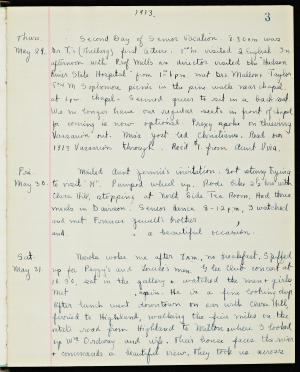 1913.
3
Thurs. Second Day of Senior Vacation. 8:50 am was
May 29. Dr. T's (Thelberg) first a ters. 1st visited 2 English In
afternoon with Prof Mills as director visited the "Hudson
River State Hospital" from 1 - 6 p.m. met Drs. Mallory, Taylor
5th M Sophomore picnic in the pine walk near chapel
at 6 pm chapel - Seemed queer to sit in a back seat
We no longer have our regular seats in front of chapel
for coming is now optional. Peggy spoke on thursday
Vassarion out. Miss Yost led Christians. Read our
1913 Vassarion through. Rec'd $1 from Aunt Vina.
Fri. Mailed Aunt Jennie's invitation. Got
May 30. to visit "H". Pumped wheel up. Rode bike with
Clara Hill, stopping at North Side Tea Room. Had three
meals in Davison. Senior dance 8-12 p.m. I watched
and met Florence Jewell's brother
and a beautiful occasion.
Sat. woke me after 7 am, no breakfast. Spiffed
May 31. up for Peggy's and Louise's men. Glee Club concert at
10.30. sat in the gallery & watched the men & girls
Met again. He is a fine looking chap
After lunch went downtown on car with Clara Hill,
ferried to Highland, walking the five miles on the
state road from Highland to Milton where I looked
up Wm Ordway and wife. Their house faces the river
& commands a beautiful view. They took us across